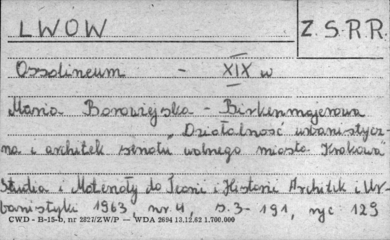 LWOW
Z.S.R.R.
Ossolineum - XIX w
Maria Borowiejska - Birkenmajerowa
„Działalność urbanistycz-
na i architek senatu wolnego miasta Krakowa"
Studia i Materiały do Teorii i Historii Architek i Ur-
banistyki 1963 nr 4, s. 3-191, ryc 129
CWD - B-15-b, nr 2827/ZW/P — WDA 2694 13.12.62 1.700.000